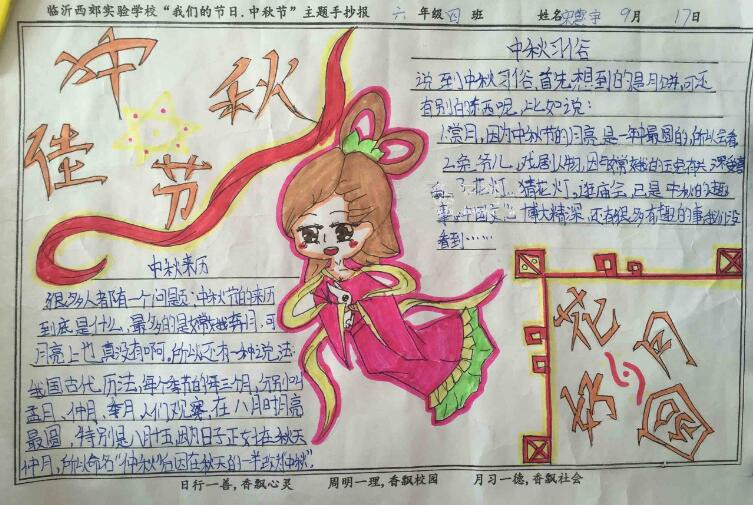 临沂西郊实验学校“我们的节日.中秋节”主题手抄报 六 年级四班 姓名 9月 17日
中秋
佳节
中秋习俗
说到中秋习俗,首先想到的是月饼,可还
有别的东西呢,比如说:
1.赏月,因为中秋节的月亮,是一年中最圆的,所以会看
2.兔爷儿,戏剧人物,因与嫦娥的玉兔有关,深受喜
3.花灯、猜花灯,逛庙会,已是中秋的趣
事,中国文化博大精深,还有很多有趣的事我们没
看到……
中秋来历
很多人都有一个问题:中秋节的来历
到底是什么,最多的是嫦娥奔月,可
月亮上也真没有啊,所以还有一种说法:
我国古代历法,每个季节的第三个月,分别叫
孟月、仲月、季月,人们观察,在八月时月亮
最圆,特别是八月十五,因为日子正好在秋天
仲月,所以命名“仲秋”,又因在秋天的一半,改为“中秋”。
花好月圆
日行一善,香飘心灵 周明一理,香飘校园 月习一德,香飘社会